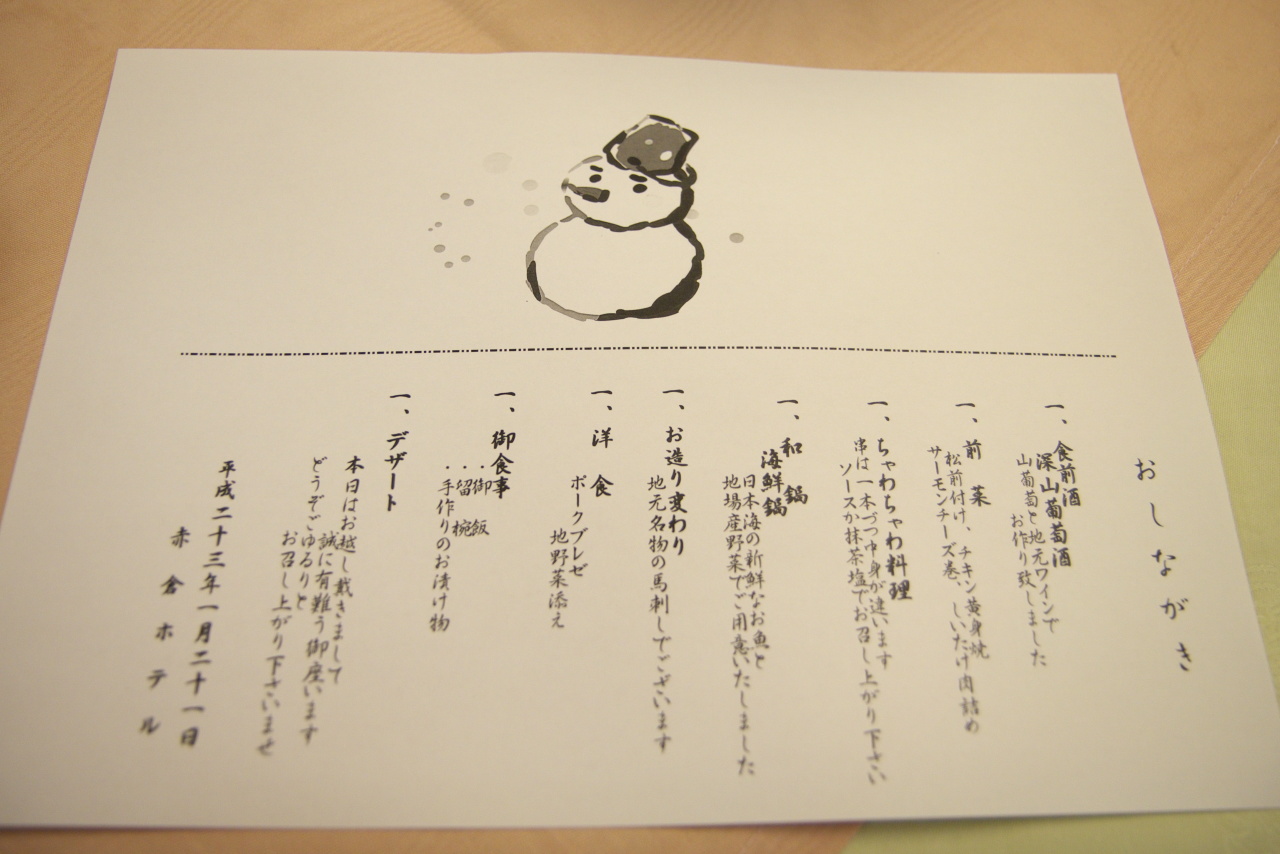 おしながき
一、食前酒
深山葡萄酒
山葡萄と地元ワインで
お作り致しました
一、前菜
松前付け、チキン黄身焼
サーモンチーズ巻、しいたけ肉詰め
一、ちゃわちゃわ料理
串は一本づつ中身が違います
ソースか抹茶塩でお召し上がり下さい
一、和鍋
海鮮鍋
日本海の新鮮なお魚と
地場産野菜でご用意いたしました
一、お造り変わり
地元名物の馬刺しでございます
一、洋食
ポークブレゼ
地野菜添え
一、御食事
・御飯
・留椀
・手作りのお漬け物
一、デザート
本日はお越し戴きまして
誠に有難う御座います
どうぞごゆるりと
お召し上がり下さいませ
平成二十三年一月二十一日
赤倉ホテル